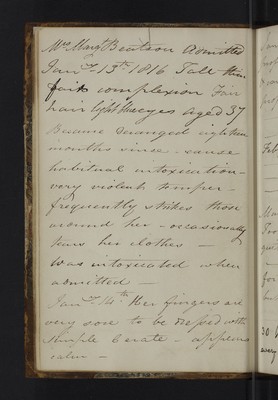 Mrs Mary Beatson Admitted
Jany 13th 1816 Tall thin
fair complexion Fair
hair light blue eyes aged 37
Became deranged eighteen
months since - cause
habitual intoxication -
very violent temper -
frequently strikes those
around her - occasionally
tears her clothes -
Was intoxicated when
admitted -
Jany 14th Her fingers are
very sore to be dressed with
Simple Cerate - appears
calm -